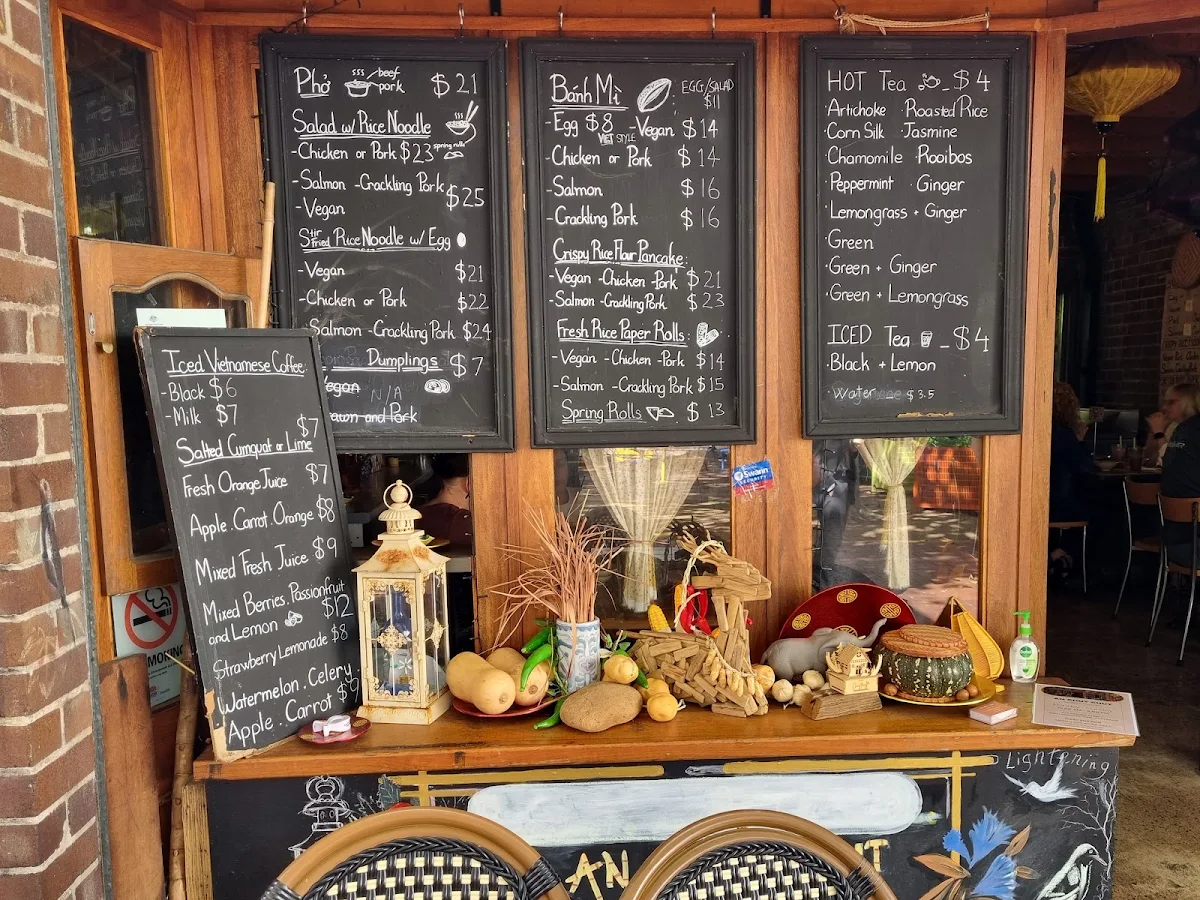 Phở beef pork $21
Salad w/ Rice Noodle
-Chicken or Pork $23 spring rolls
-Salmon -Crackling Pork $25
-Vegan
Stir Fried Rice Noodle w/ Egg
-Vegan $21
-Chicken or Pork $22
Salmon -Crackling Pork $24
Dumplings $7
egan N/A
awn and Pork
Bánh Mì EGG/SALAD $11
-Egg $8 VIET STYLE -Vegan $14
-Chicken or Pork $14
-Salmon $16
-Crackling Pork $16
Crispy Rice Flour Pancake:
-Vegan -Chicken -Pork $21
-Salmon -Crackling Pork $23
Fresh Rice Paper Rolls:
-Vegan -Chicken -Pork $14
-Salmon -Crackling Pork $15
Spring Rolls $13
HOT Tea - $4
·Artichoke ·Roasted Rice
·Corn Silk ·Jasmine
·Chamomile ·Rooibos
·Peppermint ·Ginger
·Lemongrass + Ginger
·Green
·Green + Ginger
·Green + Lemongrass
ICED Tea - $4
·Black + Lemon
·Water $3.5
Iced Vietnamese Coffee:
-Black $6
-Milk $7
Salted Cumquat or Lime $7
Fresh Orange Juice $7
Apple . Carrot . Orange $8
Mixed Fresh Juice $9
Mixed Berries . Passionfruit
and Lemon $12
Strawberry Lemonade $8
Watermelon . Celery
Apple . Carrot $9
Swann
SECURITY
MOKING
Dettol
Lightening
AN